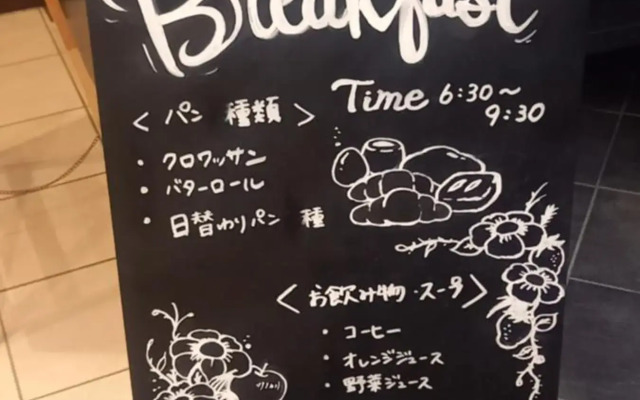 Breakfast
Time 6:30～
9:30
〈パン 種類〉
・クロワッサン
・バターロール
・日替わりパン 種
〈お飲み物・スープ〉
・コーヒー
・オレンジジュース
・野菜ジュース